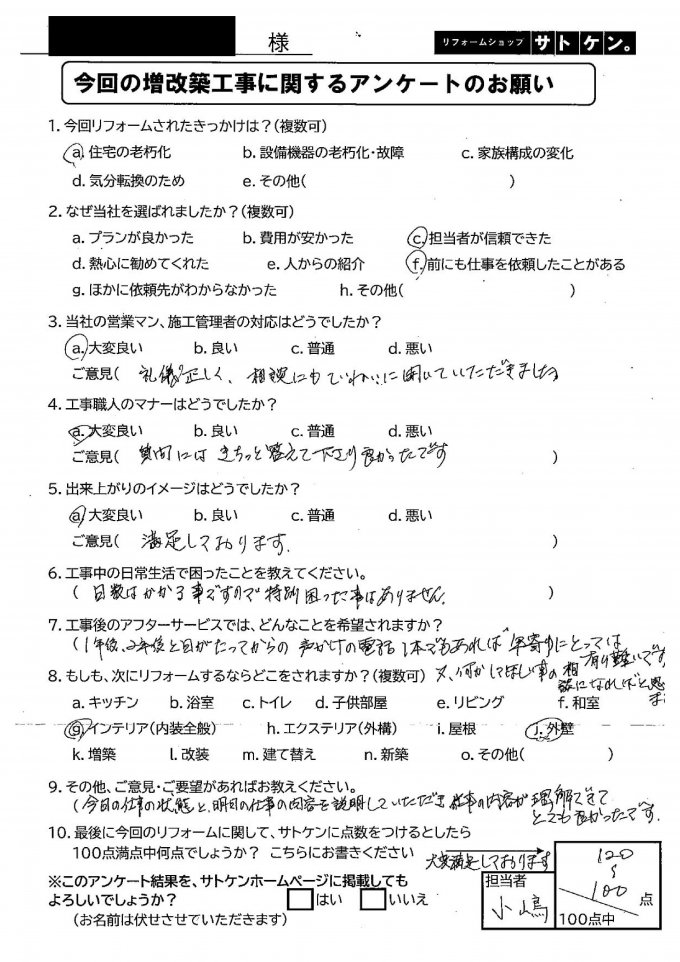 様
リフォームショップ サトケン。
今回の増改築工事に関するアンケートのお願い
1. 今回リフォームされたきっかけは？(複数可)
a. 住宅の老朽化 b. 設備機器の老朽化・故障 c. 家族構成の変化
d. 気分転換のため e. その他( )
2. なぜ当社を選ばれましたか？(複数可)
a. プランが良かった b. 費用が安かった c. 担当者が信頼できた
d. 熱心に勧めてくれた e. 人からの紹介 f. 前にも仕事を依頼したことがある
g. ほかに依頼先がわからなかった h. その他( )
3. 当社の営業マン、施工管理者の対応はどうでしたか？
a. 大変良い b. 良い c. 普通 d. 悪い
ご意見( 礼儀正しく、相談にもていねいに聞いていただきました
4. 工事職人のマナーはどうでしたか？
a. 大変良い b. 良い c. 普通 d. 悪い
ご意見( 質問にはきちっと答えて下さり良かったです )
5. 出来上がりのイメージはどうでしたか？
a. 大変良い b. 良い c. 普通 d. 悪い
ご意見( 満足しております. )
6. 工事中の日常生活で困ったことを教えてください。
( 日数はかかる事ですので特別困った事はありません. )
7. 工事後のアフターサービスでは、どんなことを希望されますか？
(1年後、2年後と日がたってからの声かけの電話1本でもあれば年寄りにとっては
有り難いです
又、何かしてほしい事の相
談になればと思
8. もしも、次にリフォームするならどこをされますか？(複数可)
a. キッチン b. 浴室 c. トイレ d. 子供部屋 e. リビング f. 和室
g. インテリア(内装全般) h. エクステリア(外構) i. 屋根 j. 外壁
k. 増築 l. 改装 m. 建て替え n. 新築 o. その他( )
9. その他、ご意見・ご要望があればお教えください。
(今日の仕事の状態と、明日の仕事の内容を説明していただき仕事の内容が理解できて
とても良かったです.
10. 最後に今回のリフォームに関して、サトケンに点数をつけるとしたら
100点満点中何点でしょうか？ こちらにお書きください
大変満足しております
120
〜
100 点
100点中
担当者
小嶋
※このアンケート結果を、サトケンホームページに掲載しても
よろしいでしょうか？ はい いいえ
(お名前は伏せさせていただきます)